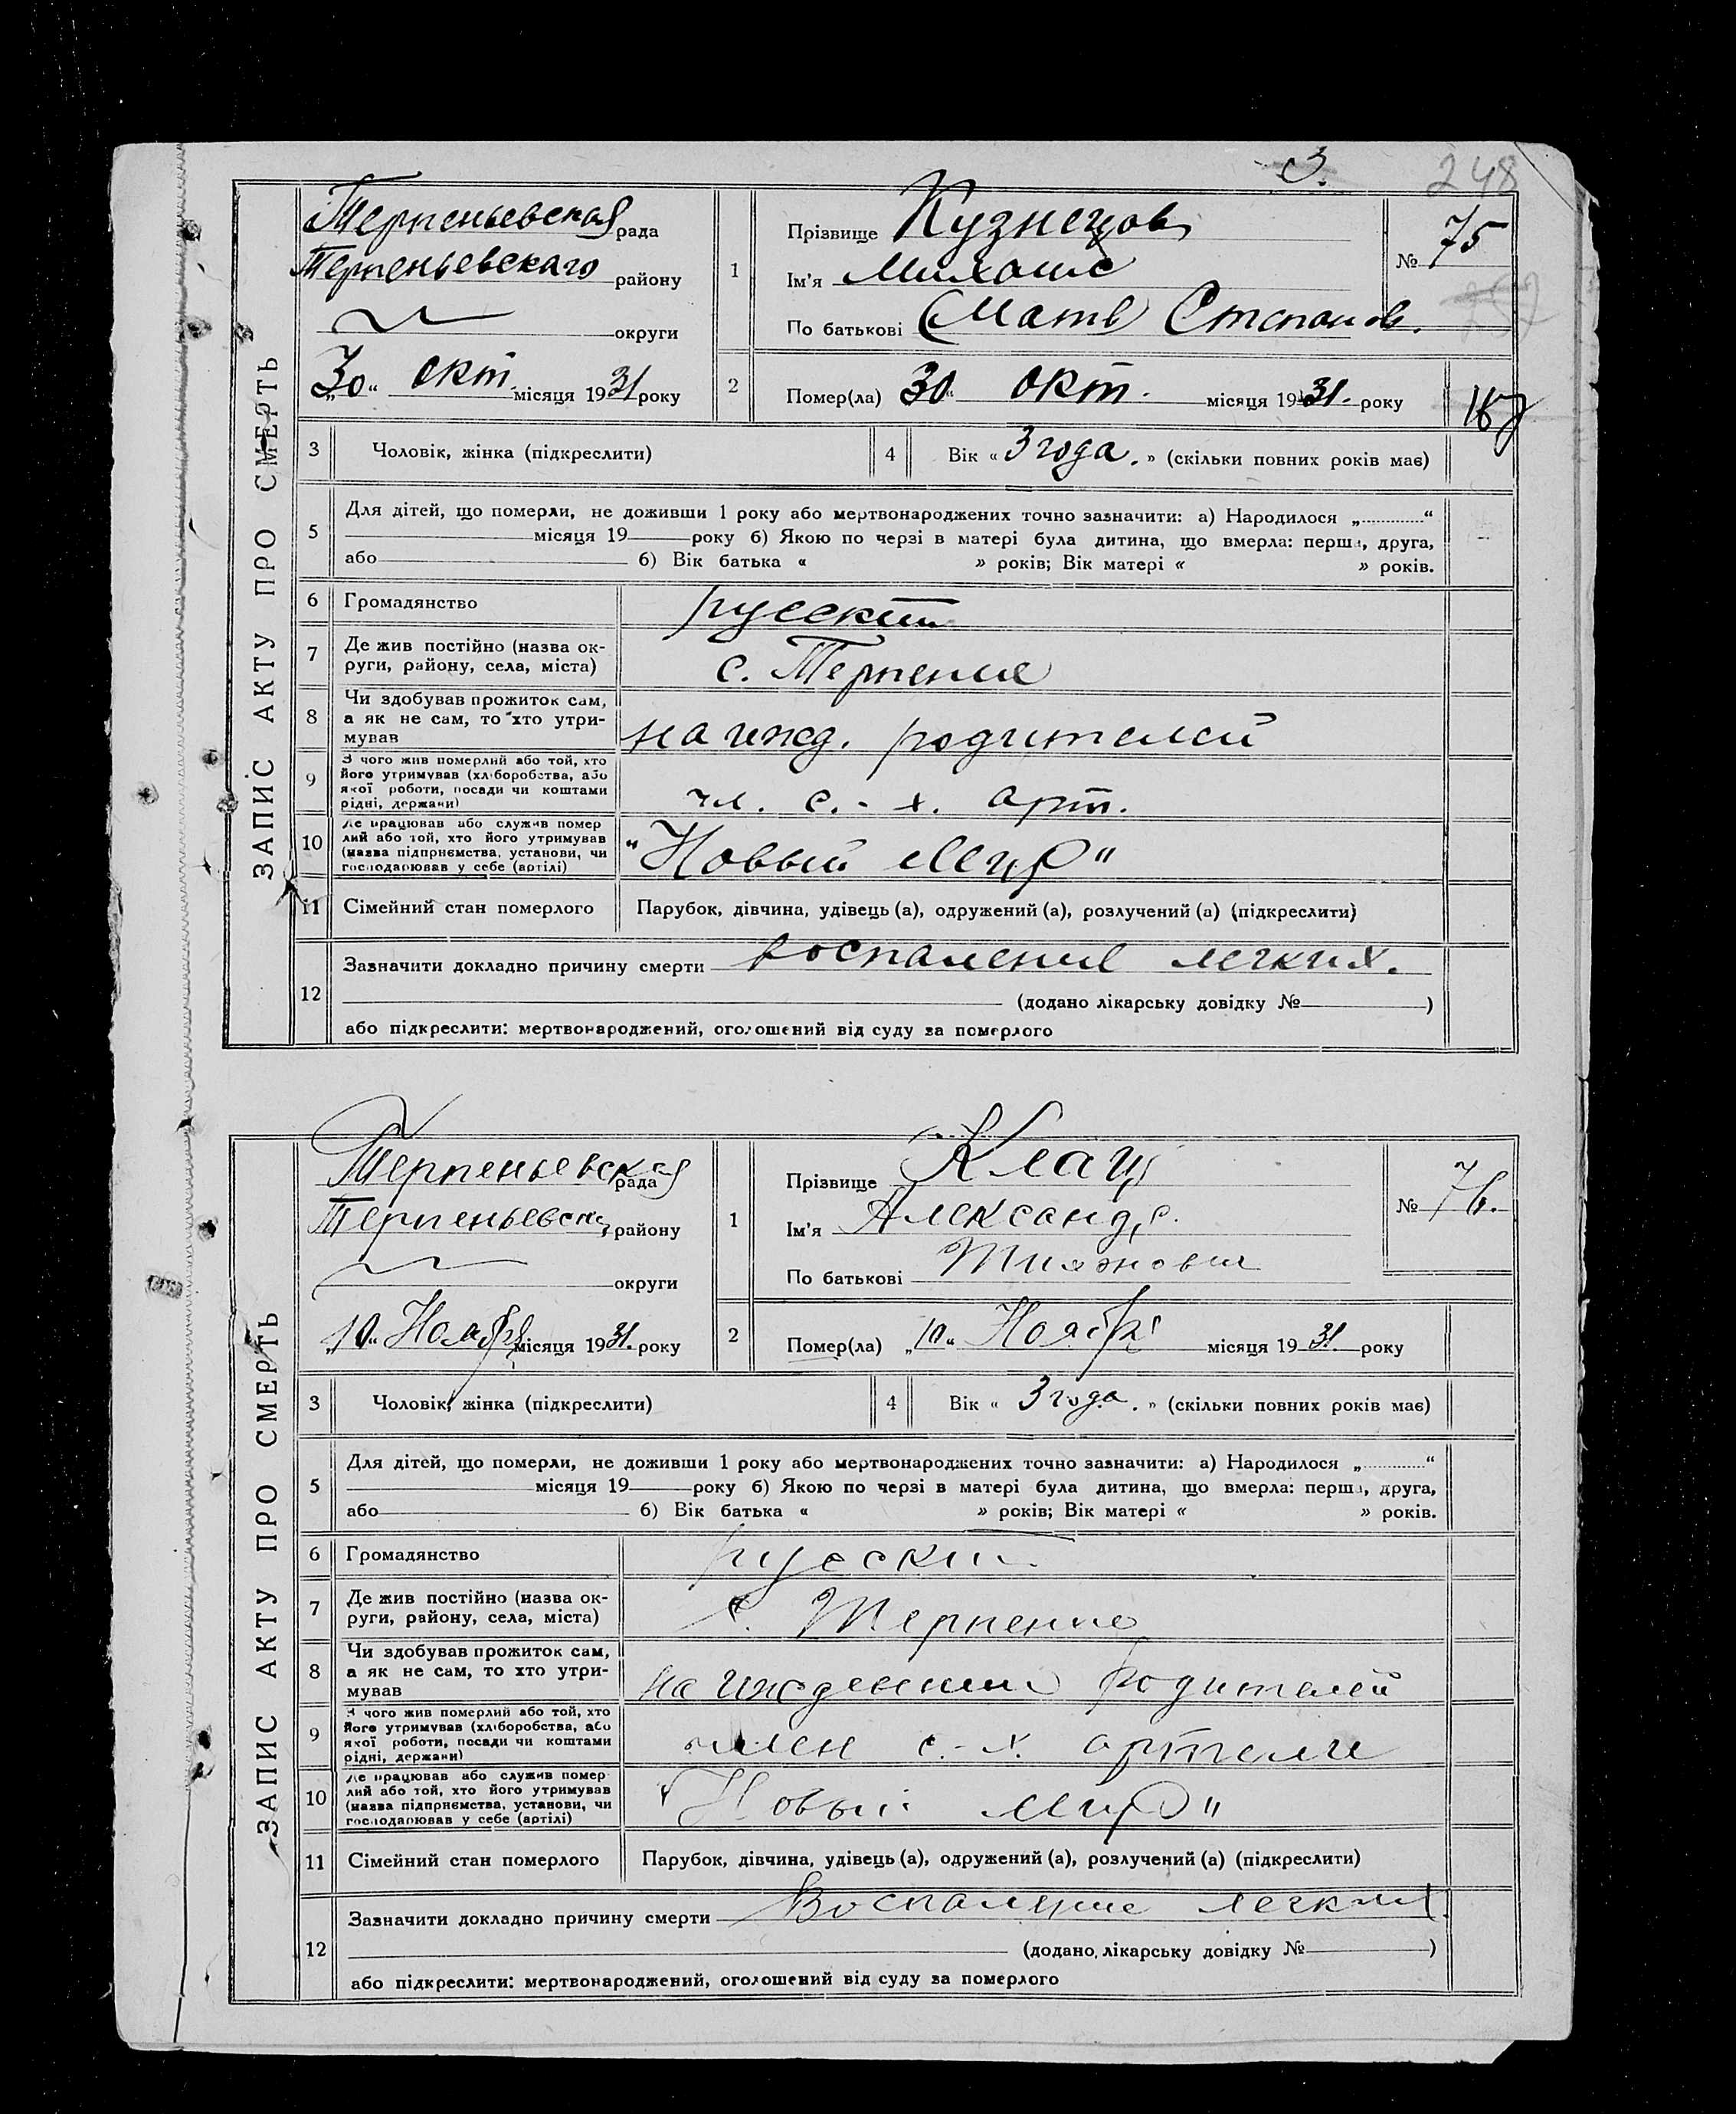 З.
248
ЗАПИС АКТУ ПРО СМЕРТЬ
Терпеньевская рада
Терпеньевскаго району
округи
„30“ окт. місяця 1931 року
1
Прізвище Кузнецов
Ім'я
По батькові Степанов.
№ 75
2
Помер(ла) 30“ окт. місяця 1931. року
167
3 Чоловік, жінка (підкреслити)
4 Вік « 3 года. » (скільки повних років має)
5
Для дітей, що померли, не доживши 1 року або мертвонароджених точно зазначити: а) Народилося „ “
місяця 19 року б) Якою по черзі в матері була дитина, що вмерла: перша, друга,
або б) Вік батька « » років; Вік матері « » років.
6 Громадянство русский
7
Де жив постійно (назва ок-
руги, району, села, міста)
с. Терпение
8
Чи здобував прожиток сам,
а як не сам, то хто утри-
мував
на ижд. родителей
9
З чого жив померлий або той, хто
його утримував (хліборобства, або
якої роботи, посади чи коштами
рідні, держави)
чл. с.-х. арт.
10
Де працював або служив помер
лий або той, хто його утримував
(назва підприємства, установи, чи
господарював у себе (артілі)
“Новый Мир”
11 Сімейний стан померлого Парубок, дівчина, удівець (а), одружений (а), розлучений (а) (підкреслити)
12
Зазначити докладно причину смерти воспаление легких.
(додано лікарську довідку № )
або підкреслити: мертвонароджений, оголошений від суду за померлого
ЗАПИС АКТУ ПРО СМЕРТЬ
Терпеньевская рада
Терпеньевск району
округи
„10“ Ноября місяця 1931. року
1
Прізвище
Ім'я Александр.
По батькові
№ 76.
2
Помер(ла) „10“ Ноября місяця 1931. року
3 Чоловік, жінка (підкреслити)
4 Вік « 3 года. » (скільки повних років має)
5
Для дітей, що померли, не доживши 1 року або мертвонароджених точно зазначити: а) Народилося „ “
місяця 19 року б) Якою по черзі в матері була дитина, що вмерла: перша, друга,
або б) Вік батька « » років; Вік матері « » років.
6 Громадянство русский
7
Де жив постійно (назва ок-
руги, району, села, міста)
с. Терпение
8
Чи здобував прожиток сам,
а як не сам, то хто утри-
мував
на иждении родителей
9
З чого жив померлий або той, хто
його утримував (хліборобства, або
якої роботи, посади чи коштами
рідні, держави)
член с.-х. артели
10
Де працював або служив помер
лий або той, хто його утримував
(назва підприємства, установи, чи
господарював у себе (артілі)
“Новый мир”
11 Сімейний стан померлого Парубок, дівчина, удівець (а), одружений (а), розлучений (а) (підкреслити)
12
Зазначити докладно причину смерти Воспаление легких.
(додано лікарську довідку № )
або підкреслити: мертвонароджений, оголошений від суду за померлого